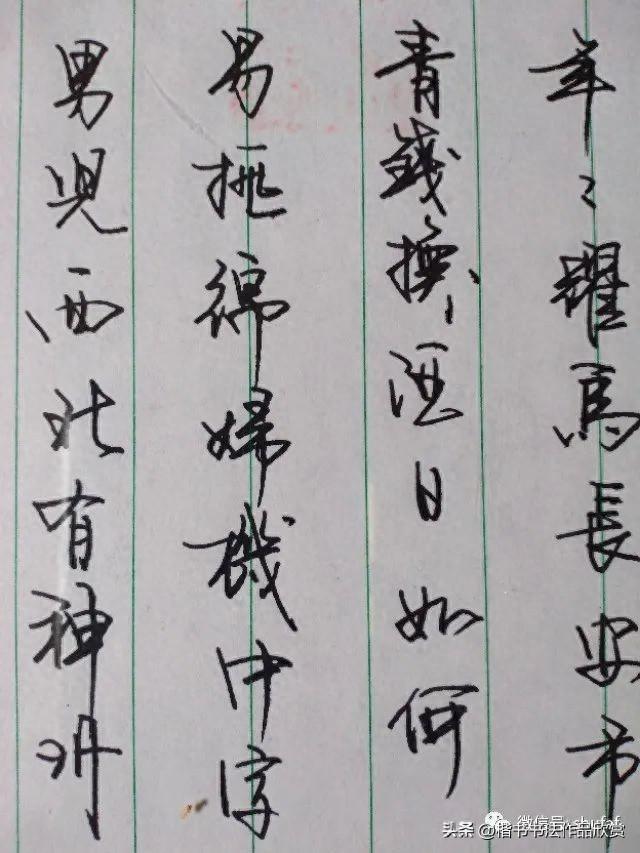 年々躍馬長安市
青錢換酒日如何
易挑錦婦機中字
男兒西北有神州
微信号: shufaf
头条 @楷书书法作品欣赏